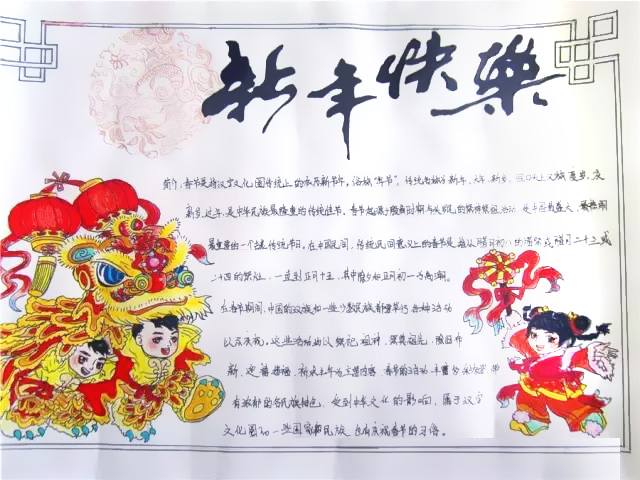 新年快樂
简介:春节是指汉字文化圈传统上的农历新年,俗称“年节”,传统名称为新年、大年、新岁,但口头上又称度岁、庆
新岁、过年,是中华民族最隆重的传统佳节。春节起源于殷商时期年头岁尾的祭神祭祖活动,是中国最盛大、最热闹
最重要的一个古老传统节日。在中国民间,传统意义上的春节是指从腊月初八的腊祭或腊月二十三或
二十四的祭灶,一直到正月十五,其中除夕和正月初一为高潮。
在春节期间,中国的汉族和一些少数民族都要举行各种活动
以示庆祝。这些活动均以祭祀祖神、祭奠祖先、除旧布
新、迎禧接福、祈求丰年为主要内容。春节的活动丰富多彩 带
有浓郁的各民族特色。受到中华文化的影响,属于汉字
文化圈的一些国家和民族也有庆祝春节的习俗。